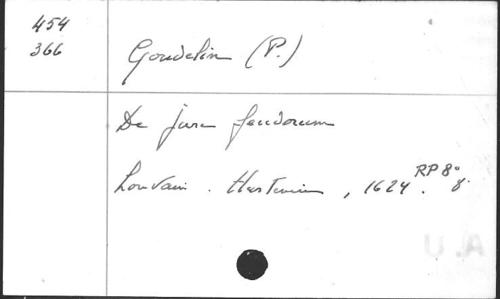 454
366
Goudelin (P.)
De jure feudorum
Louvain. Hastenius, 1624. 8°
RP 8°